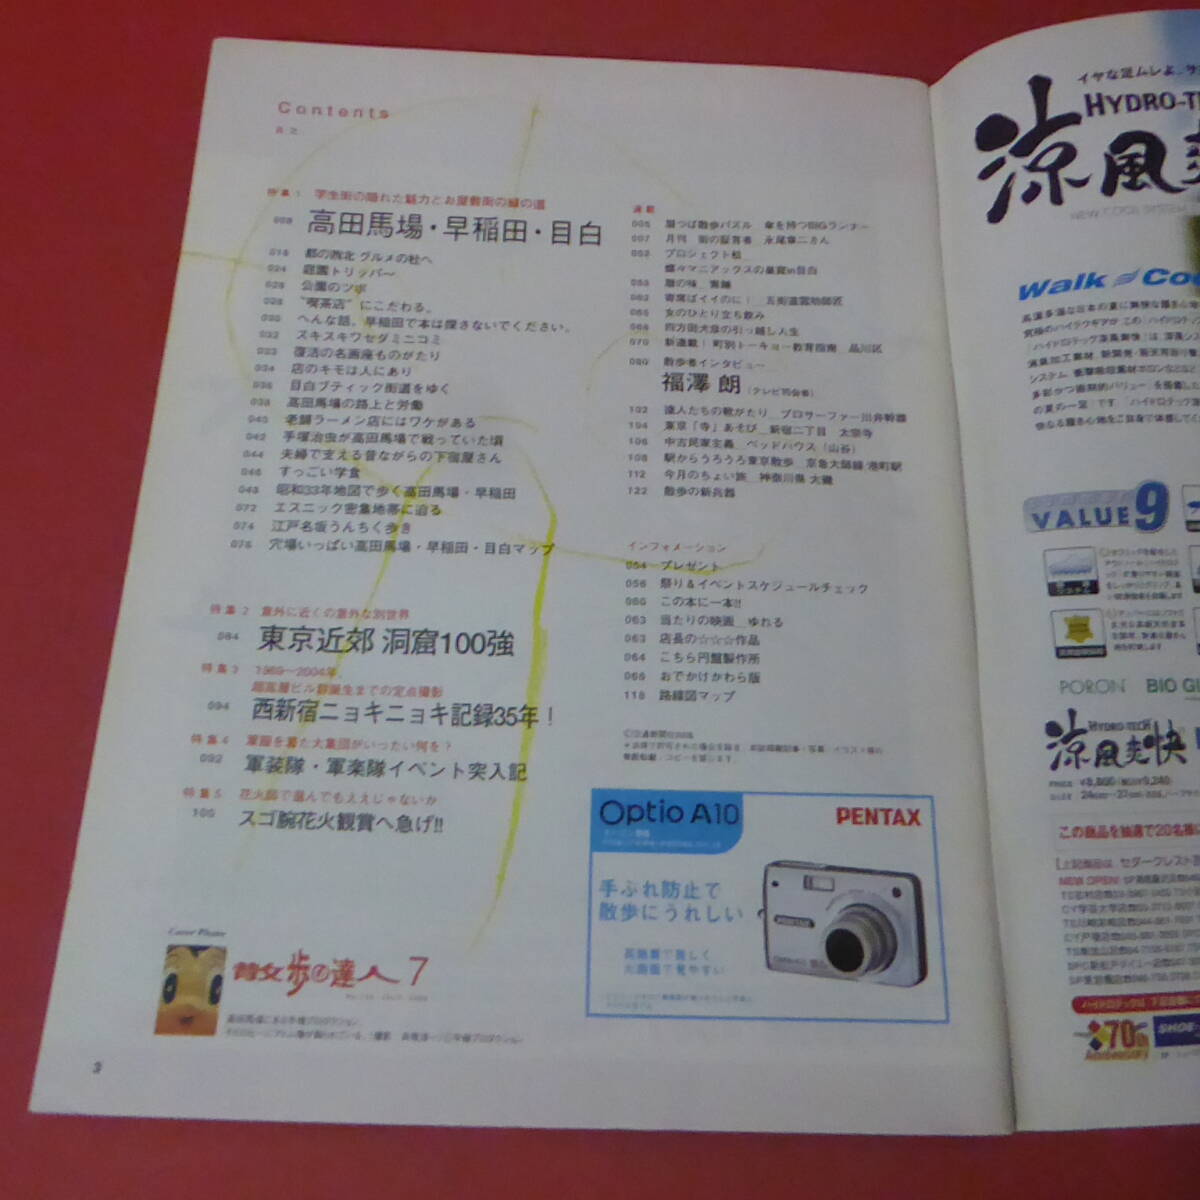 Contents
目次
特集1 学生街の隠れた魅力とお屋敷街の緑の道
008 高田馬場・早稲田・目白
016 都の西北 グルメの杜へ
024 庭園トリッパー
026 公園のツボ
028 “喫茶店”にこだわる。
030 へんな話。早稲田で本は探さないでください。
032 スキスキワセダミニコミ
033 復活の名画座ものがたり
034 店のキモは人にあり
036 目白ブティック街道をゆく
038 高田馬場の路上と労働
040 老舗ラーメン店にはワケがある
042 手塚治虫が高田馬場で戦っていた頃
044 夫婦で支える昔ながらの下宿屋さん
046 すっごい学食
048 昭和33年地図で歩く高田馬場・早稲田
072 エスニック密集地帯に迫る
074 江戸名坂うんちく歩き
076 穴場いっぱい高田馬場・早稲田・目白マップ
特集2 意外に近くの意外な別世界
084 東京近郊 洞窟100強
特集3 1969〜2004年、
超高層ビル群誕生までの定点撮影
094 西新宿ニョキニョキ記録35年!
特集4 軍服を着た大集団がいったい何を?
092 軍装隊・軍楽隊イベント突入記
特集5 花火師で選んでもええじゃないか
100 スゴ腕花火観賞へ急げ!!
Cover Photo
散歩の達人 7
高田馬場にある手塚プロダクション。
連載
005 眉つば散歩パズル 傘を持つBIGランナー
007 月刊 街の証言者 永尾章二さん
052 プロジェクト松
蝶々マニアックスの巣窟in目白
058 暦の味
062 寄席ばイイのに! 五街道雲助師匠
065 女のひとり立ち飲み
068 四方田犬彦の引っ越し人生
070 新連載! 町別トーキョー教育指南 品川区
080 散歩者インタビュー
福澤 朗 (テレビ司会者)
102 達人たちの靴がたり プロサーファー川井幹雄
104 東京「寺」あそび 新宿二丁目 太宗寺
106 中古民家主義 ベッドハウス(山谷)
108 駅からうろうろ東京散歩 京急大師線 港町駅
112 今月のちょい旅 神奈川県 大磯
122 散歩の新兵器
インフォメーション
054 プレゼント
056 祭り&イベントスケジュールチェック
060 この本に一本!!
063 当たりの映画 ゆれる
063 店長の☆☆☆作品
064 こちら円盤製作所
066 おでかけかわら版
118 路線図マップ
Optio A10
PENTAX
手ぶれ防止で
散歩にうれしい
高画質で美しく
大画面で見やすい
3
イヤな足ムレよ、
HYDRO-TE
涼風爽
Walk Coo
VALUE 9
PORON BIO GU
HYDRO-TECH
涼風爽快
この商品を抽選で20名様に
NEW OPEN!
70th
Anniversary
SHOE